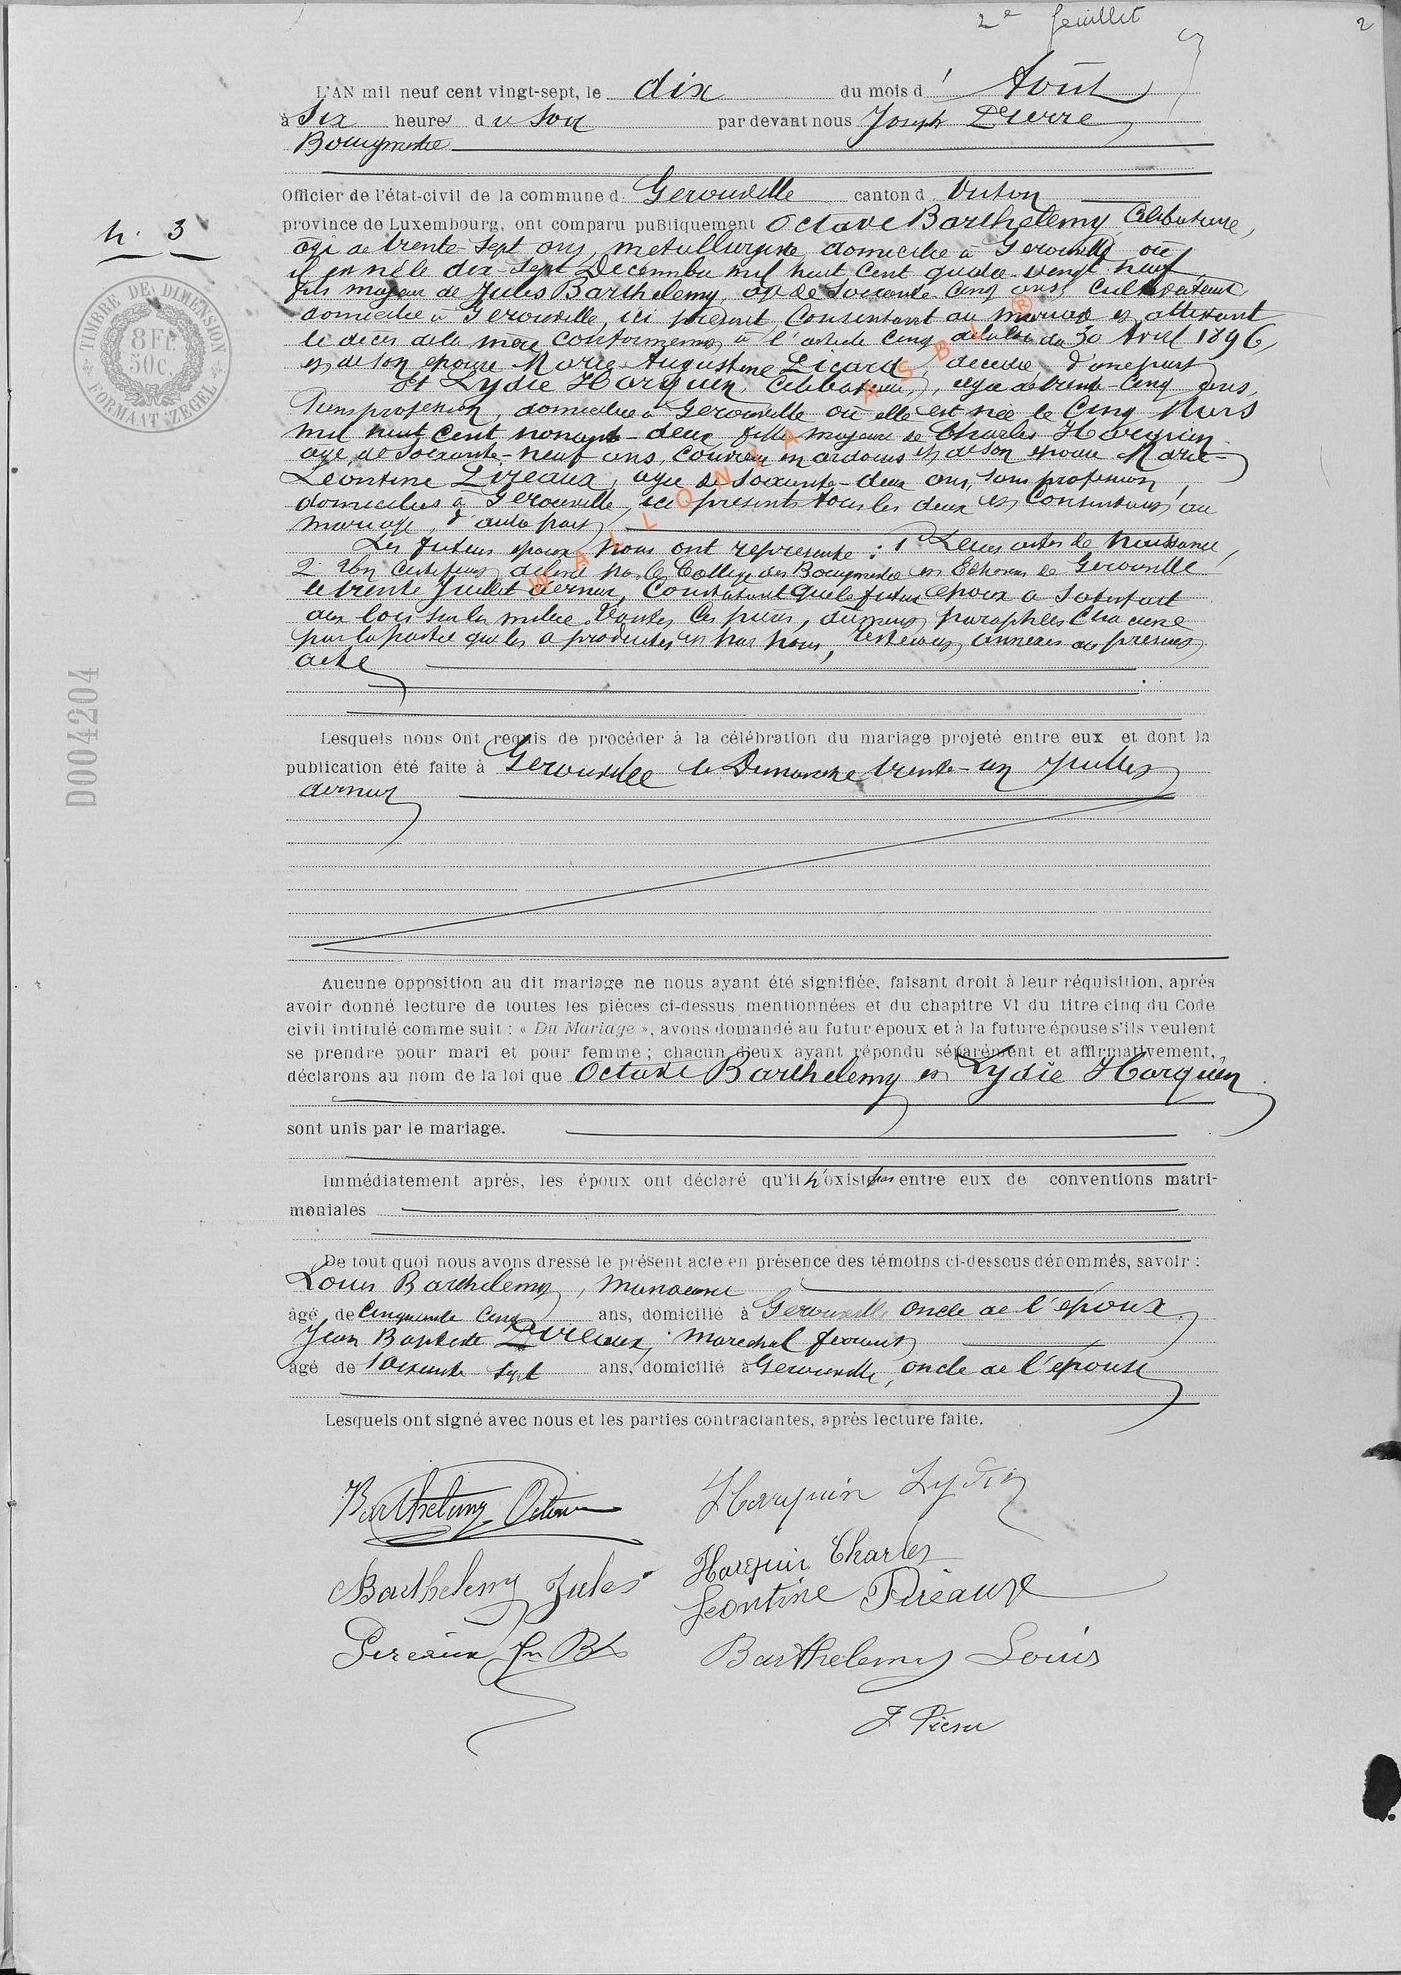 2e feuillet
2
L'AN mil neuf cent vingt-sept, le dix du mois d' Août
à Six heures du Soir par devant nous Joseph Pierre
Bourgmestre
Officier de l'état-civil de la commune d Gerouville canton d Virton
province de Luxembourg, ont comparu publiquement Octave Barthelemy, Célibataire,
N. 3
âgé de trente-sept ans, metallurgiste domicilié à Gerouville où
il est né le dix-sept Decembre mil huit cent quatre-vingt neuf
TIMBRE DE DIMENSION
8 Fr. 50c.
FORMAAT ZEGEL
fils majeur de Jules Barthelemy, âgé de soixante-cinq ans, Cultivateur
domicilié à Gerouville, ici présent consentant au mariage et attestant
le décès de la mère conformément à l'article cinq de la loi du 30 Avril 1896,
et de son epouse Marie Augustine Picard, decedée, d'une part
Et Lydie Harquin, Célibataire, agée de trente-cinq ans,
Sans profession, domiciliée à Gerouville où elle est née le cinq Mars
mil huit cent nonante-deux fille majeure de Charles Harquin
agé de soixante-neuf ans, couvreur en ardoises et de son epouse Marie-
Léontine Pireaux, agée de soixante-deux ans, sans profession,
domiciliés à Gerouville, ici présents tous les deux et consentants au
mariage, d'autre part
WALLONIA ASBL ®
Les futurs epoux nous ont representé : 1° Leurs actes de naissance,
2° Un certificat délivré par le Collège des Bourgmestre et Echevins de Gerouville
le trente Juillet dernier, constatant que le futur epoux a satisfait
aux lois sur la milice. Toutes ces pièces, dûment paraphées chacune
par la partie qui les a produites et par nous, resteront annexées au présent
acte
D004204
Lesquels nous ont requis de procéder à la célébration du mariage projeté entre eux et dont la
publication été faite à Gerouville le Dimanche trente-un Juillet
dernier
Aucune opposition au dit mariage ne nous ayant été signifiée, faisant droit à leur réquisition, après
avoir donné lecture de toutes les pièces ci-dessus mentionnées et du chapitre VI du titre cinq du Code
civil intitulé comme suit : « Du Mariage », avons demandé au futur époux et à la future épouse s'ils veulent
se prendre pour mari et pour femme ; chacun d'eux ayant répondu séparément et affirmativement,
déclarons au nom de la loi que Octave Barthelemy et Lydie Harquin
sont unis par le mariage.
Immédiatement après, les époux ont déclaré qu'il n'existe pas entre eux de conventions matri-
moniales
De tout quoi nous avons dressé le présent acte en présence des témoins ci-dessous dénommés, savoir :
Louis Barthelemy, Manoeuvre
âgé de cinquante cinq ans, domicilié à Gerouville oncle de l'époux
Jean Baptiste Pireaux, Marechal ferrant
âgé de soixante sept ans, domicilié à Gerouville, oncle de l'épouse
Lesquels ont signé avec nous et les parties contractantes, après lecture faite.
Barthelemy Octave Harquin Lydie
Harquin Charles
Barthelemy Jules Léontine Pireaux
Pireaux Jn Bte Barthelemy Louis
J. Pierre